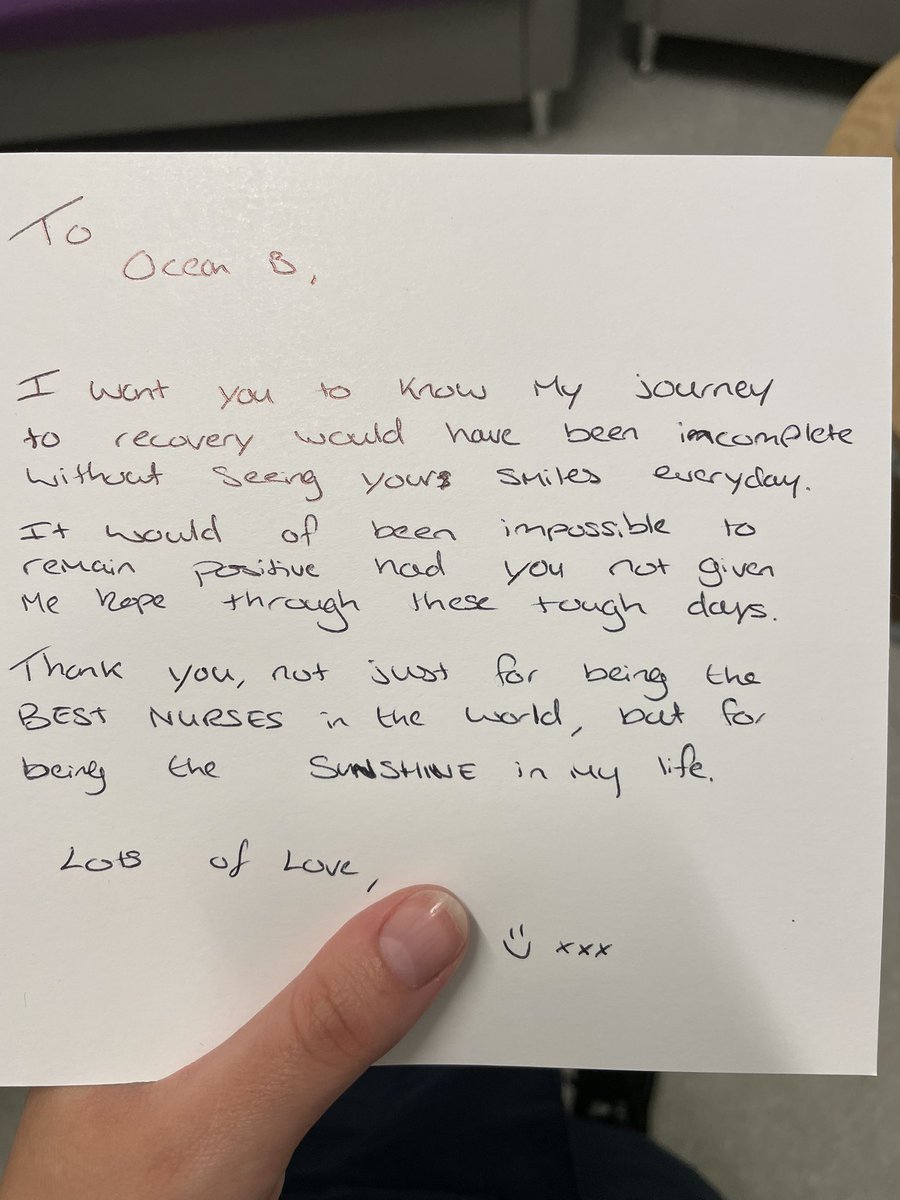 To
Ocean B,
I want you to know My journey
to recovery would have been incomplete
without seeing yours smiles everyday.
It would of been impossible to
remain positive had you not given
Me hope through these tough days.
Thank you, not just for being the
BEST NURSES in the world, but for
being the SUNSHINE in My life.
Lots of Love,
xxx